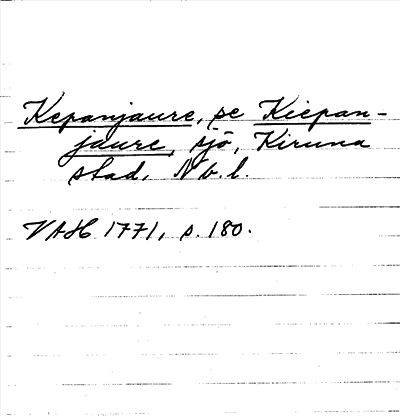 Kepanjaure, se Kiepan-
jaure, sjö, Kiruna
stad, Nb. l.
VAH 1771, s. 180.